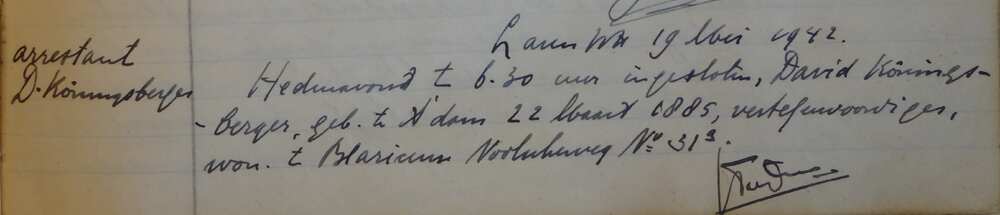 Laren NH 19 Mei 1942.
arrestant
D. Köningsberger
Hedenavond t 6.30 uur ingesloten, David Könings-
-berger, geb. te A'dam 22 Maart 1885, vertegenwoordiger,
won. t Blaricum No 31